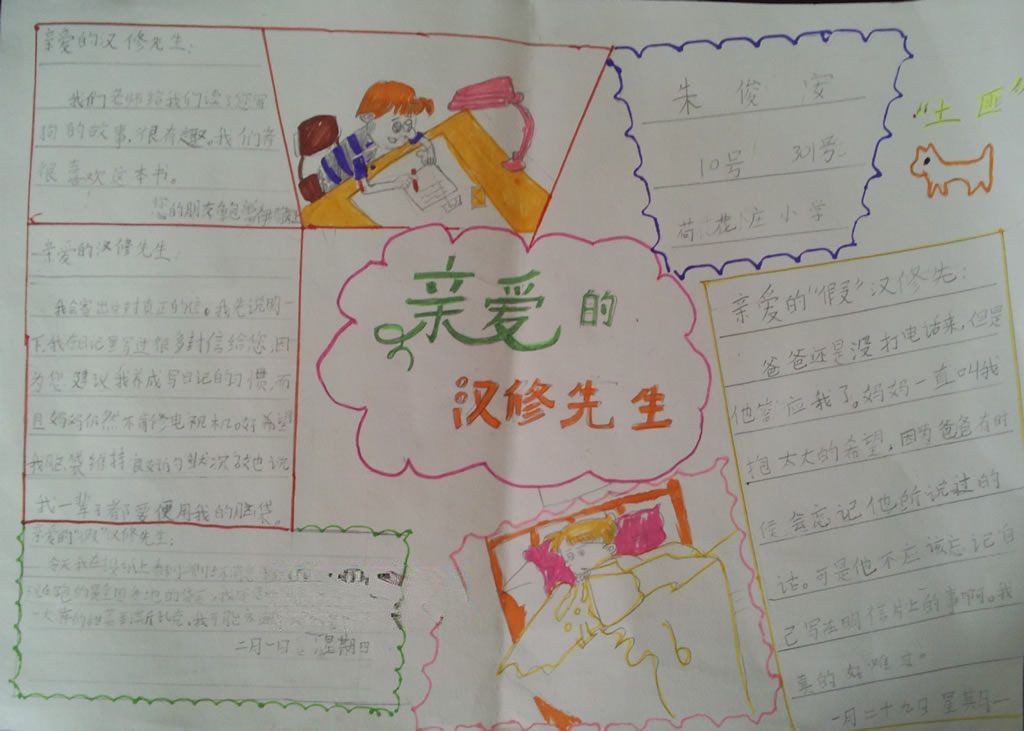 亲爱的汉修先生：
我们老师给我们读了您写
狗的故事，很有趣。我们都
很喜欢这本书。
您的朋友鲍
亲爱的汉修先生：
我会寄出这封真正的信。我先说明一
下，我在日记里写过很多封信给您，因
为您建议我养成写日记的习惯，而
且妈妈仍然不肯修电视机。她希望
我脑袋维持良好的状况，她说
我一辈子都要使用我的脑袋。
亲爱的"假"汉修先生：
今天我在
二月一日 星期日
亲爱的
汉修先生
朱俊
10号 301号
荷花小庄小学
"土匪"
亲爱的"假"汉修先：
爸爸还是没打电话来，但是
他答应我了。妈妈一直叫我
抱太大的希望，因为爸爸有时
侯会忘记他所说过的
话。可是他不应该忘记自
己写在明信片上的事啊。我
真的好难过。
一月二十九日 星期一